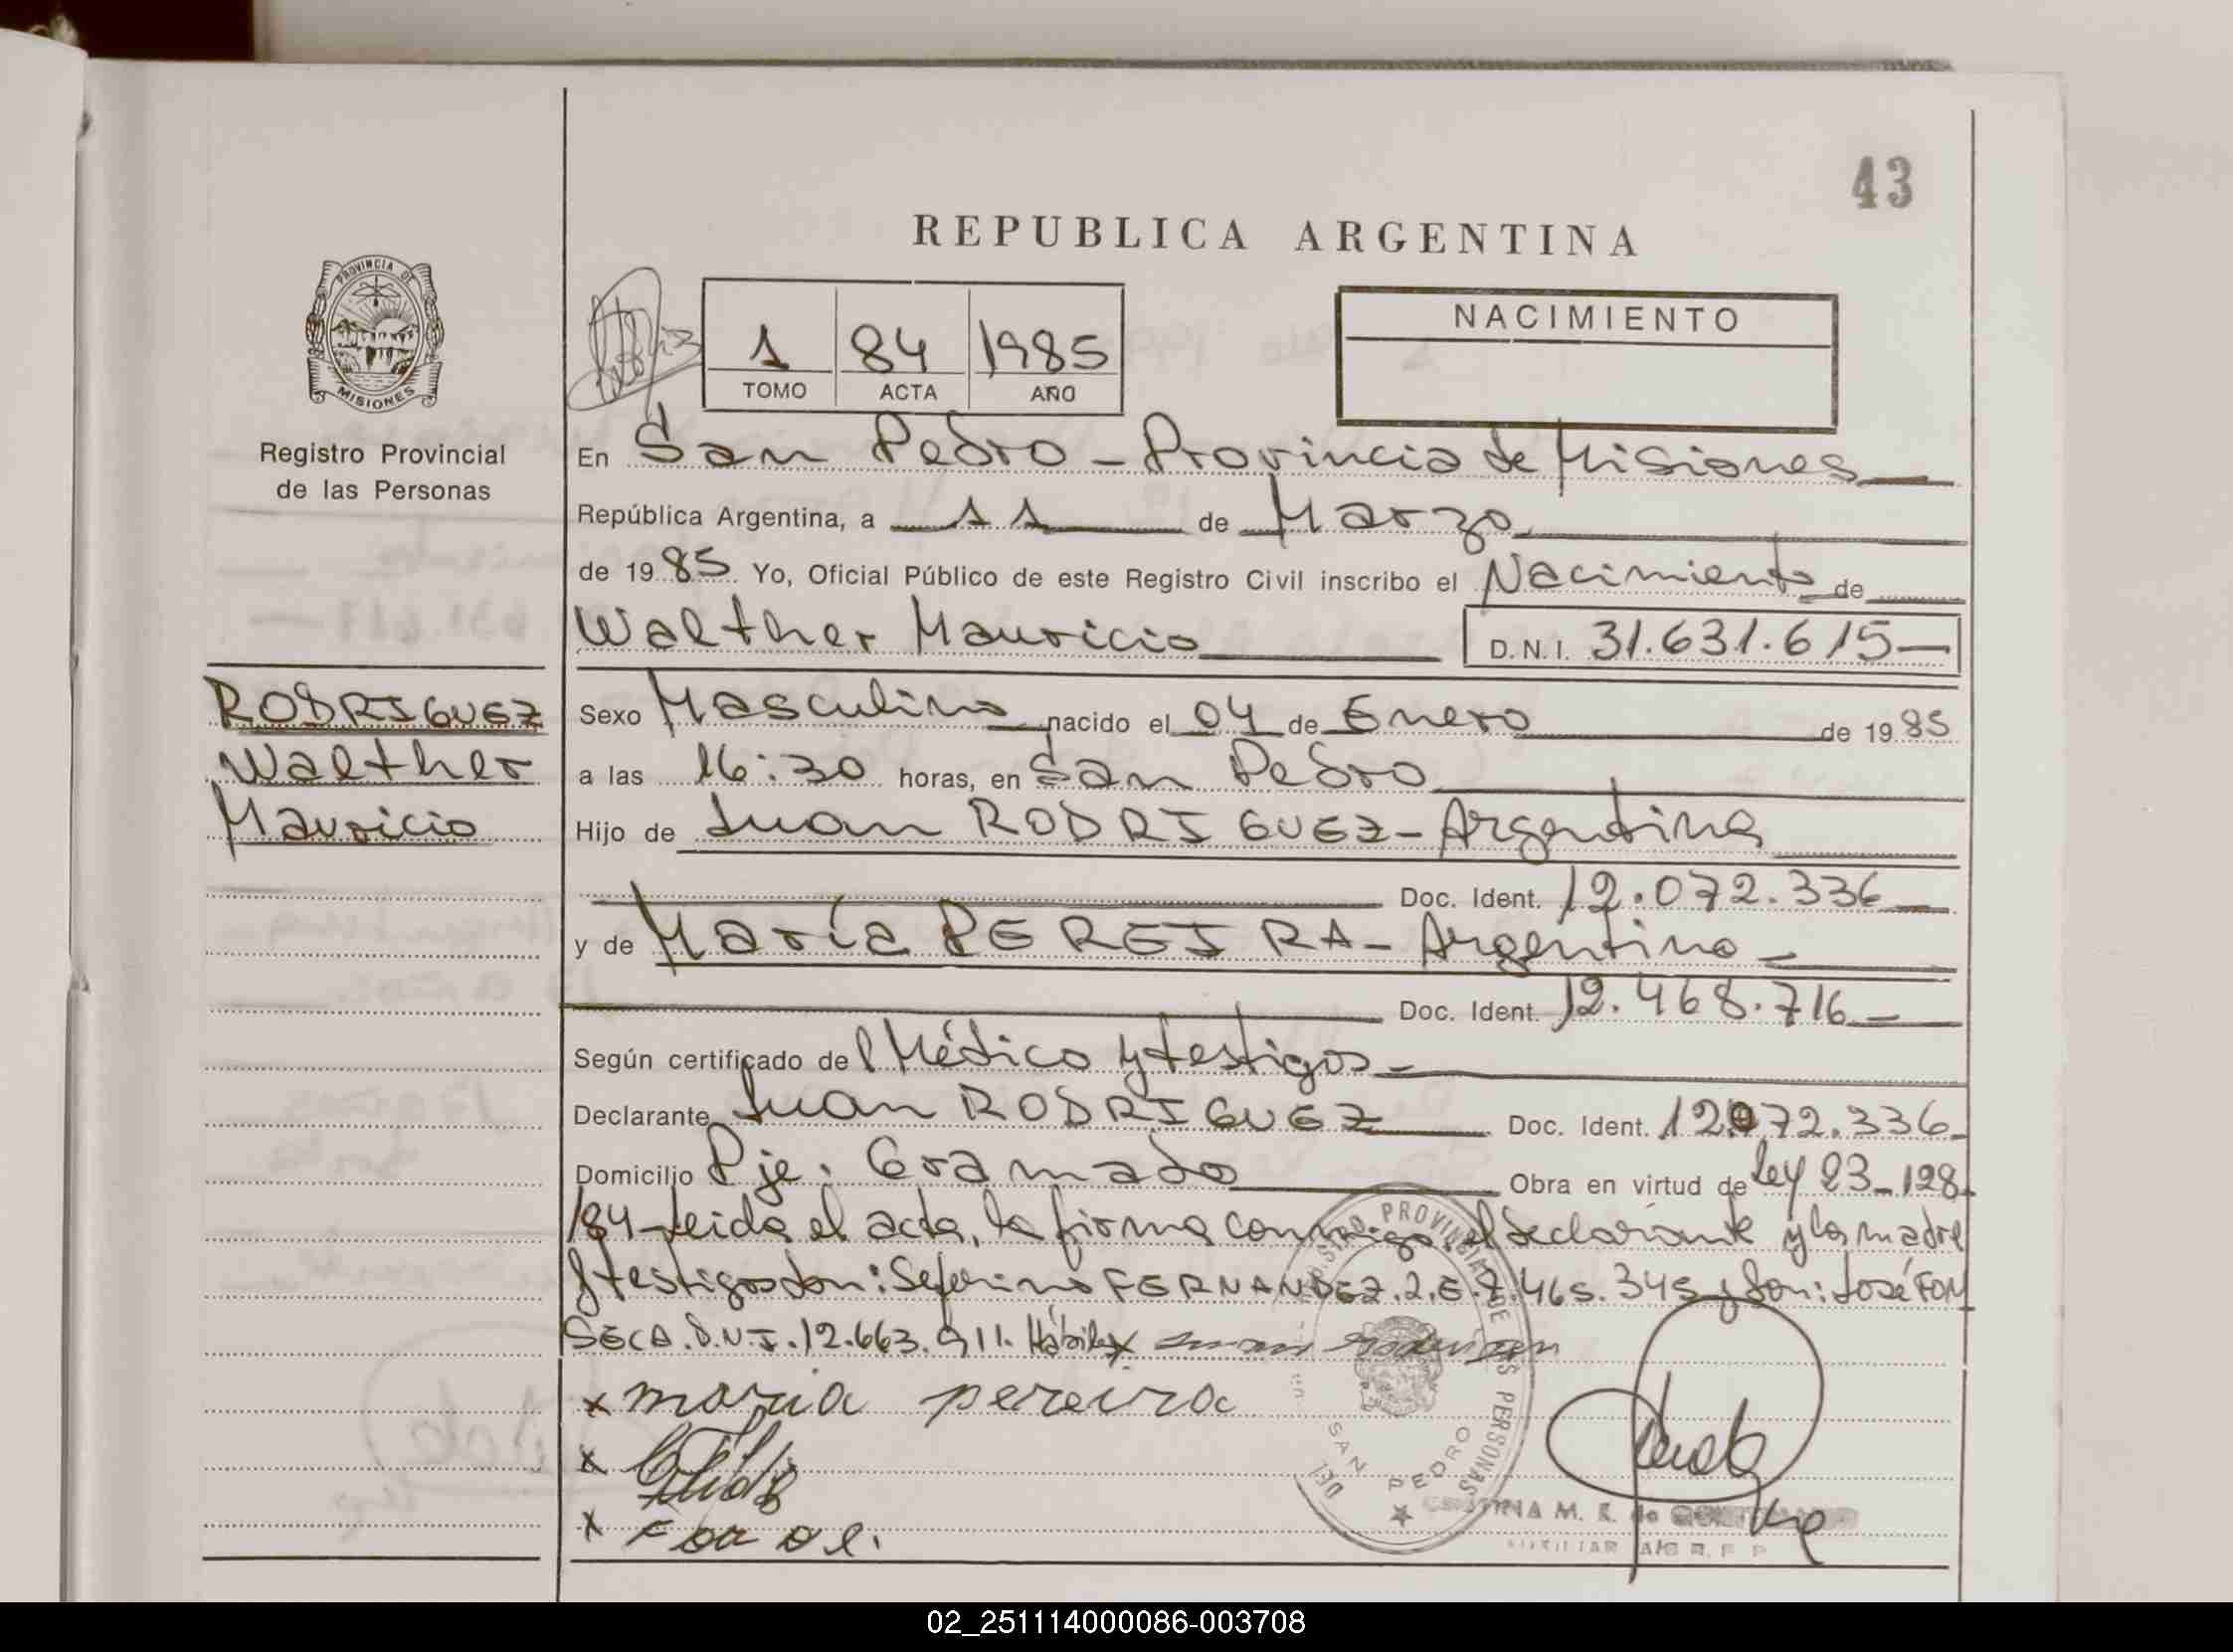 43
REPUBLICA ARGENTINA
PROVINCIA DE
MISIONES
Registro Provincial
de las Personas
1 84 1985
TOMO ACTA AÑO
NACIMIENTO
En San Pedro - Provincia de Misiones
República Argentina, a 11 de Marzo
de 1985 Yo, Oficial Público de este Registro Civil inscribo el Nacimiento de
Walther Mauricio D.N.I. 31.631.615
RODRIGUEZ
Walther
Mauricio
Sexo Masculino nacido el 04 de Enero de 1985
a las 16:30 horas, en San Pedro
Hijo de Juan RODRIGUEZ - Argentina
Doc. Ident. 12.072.336
y de María PEREIRA - Argentina
Doc. Ident. 12.468.716
Según certificado del Médico y testigos
Declarante Juan RODRIGUEZ Doc. Ident. 12.072.336
Domicilio Pje. Gramado Obra en virtud de Ley 23-128
/84 - leida el acta, la firma conmigo el declarante y la madre
y testigos don: Seferino FERNANDEZ. L.E. 7.465.345 y don: José FON
SECA. D.N.I. 12.663.911. Hábiles x
x maria pereira
x
x
REGISTRO PROVINCIAL DE LAS PERSONAS
DEL SAN PEDRO
M. R. de
AUXILIAR
02_251114000086-003708